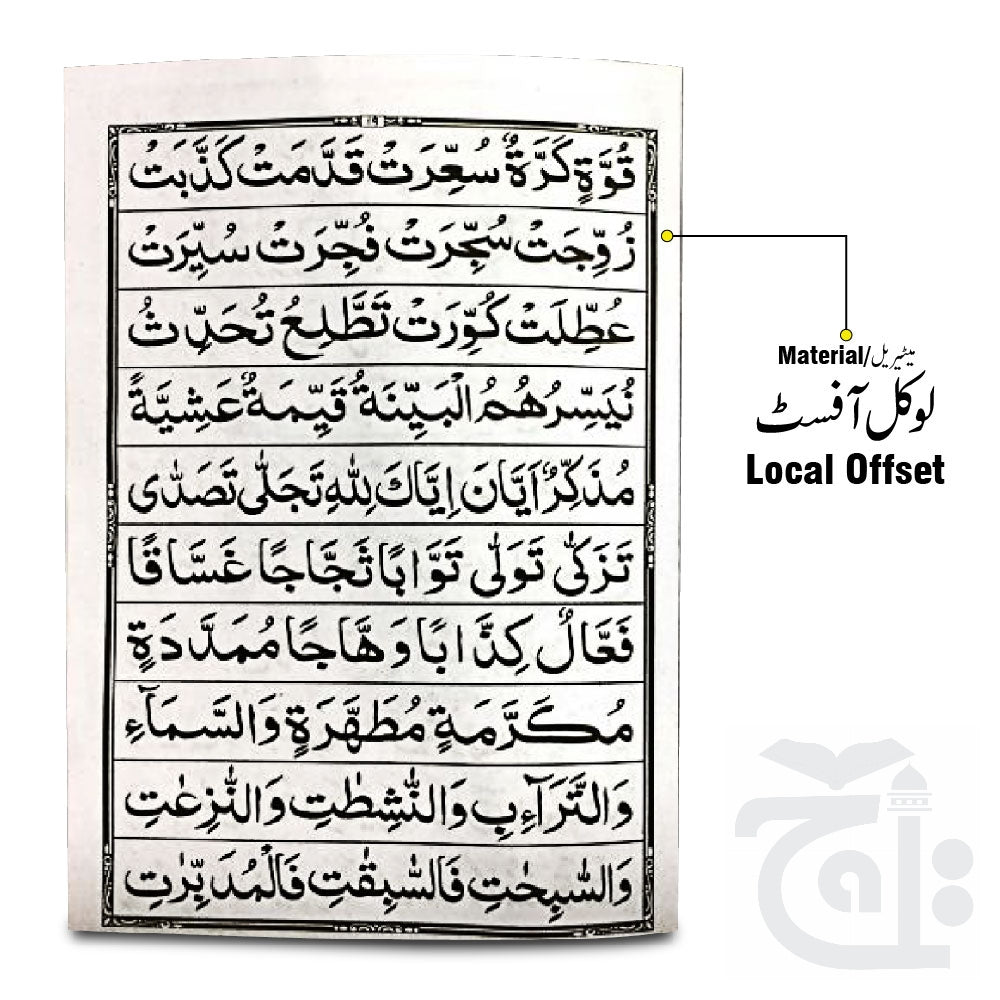 قُوَّةٍ كَرَّةٌ سُعِّرَتْ قَدَّمَتْ كَذَّبَتْ
زُوِّجَتْ سُجِّرَتْ فُجِّرَتْ سُيِّرَتْ
عُطِّلَتْ كُوِّرَتْ تَطَّلِعُ تُحَدِّثُ
نُيَسِّرُ هُمُ الْبَيِّنَةُ قَيِّمَةٌ عَشِيَّةً
مُذَكِّرٌ اَيَّانَ اِيَّاكَ لِلّٰهِ تَجَلّٰى تَصَدّٰى
تَزَكّٰى تَوَلّٰى تَوَّابًا ثَجَّاجًا غَسَّاقًا
فَعَّالٌ كِذَّابًا وَهَّاجًا مُمَدَّدَةٍ
مُكَرَّمَةٍ مُطَهَّرَةٍ وَالسَّمَآءِ
وَالتَّرَآءِبِ وَالنّٰشِطٰتِ وَالنّٰزِعٰتِ
وَالسّٰبِحٰتِ فَالسّٰبِقٰتِ فَالْمُدَبِّرٰتِ
Material/میٹیریل
لوکل آفسٹ
Local Offset